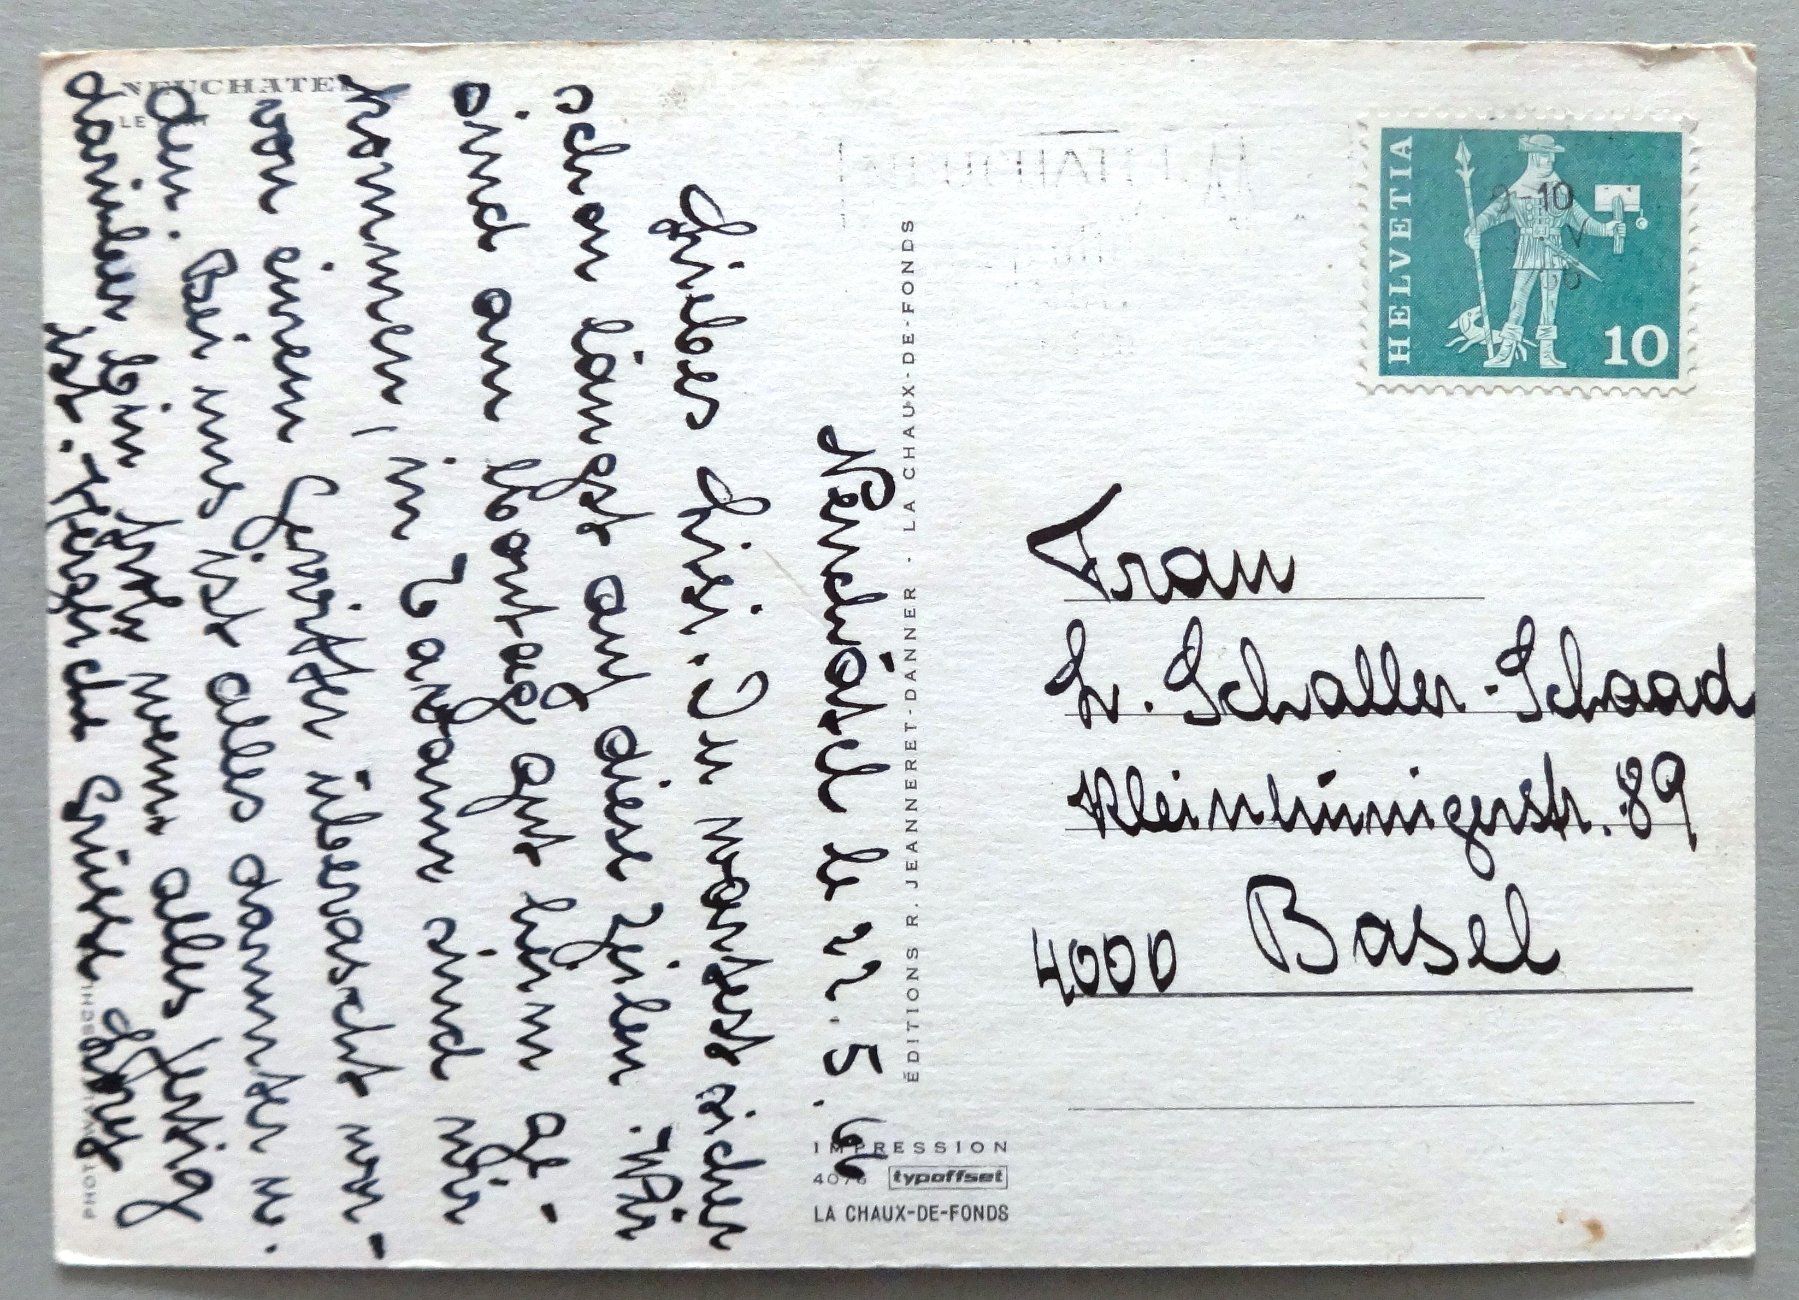 NEUCHATEL
LE PORT
Neuchâtel le 22.5.68
Liebes Lisi. Du wartest sicher
schon längst auf diese Zeilen. Wir
sind am Sontag gut heim ge-
kommen, in Tavann sind wir
von einem Gewitter überascht wor-
den. Bei uns ist alles darunter u.
darüber bin froh wenn alles fertig
ist. Herzliche Grüsse
PHOTO
ÉDITIONS R. JEANNERET-DANNER - LA CHAUX-DE-FONDS
IMPRESSION
typoffset
LA CHAUX-DE-FONDS
HELVETIA
10
9-10
V
Frau
L. Schaller-Schaad
Kleinhüningerstr. 89
4000 Basel